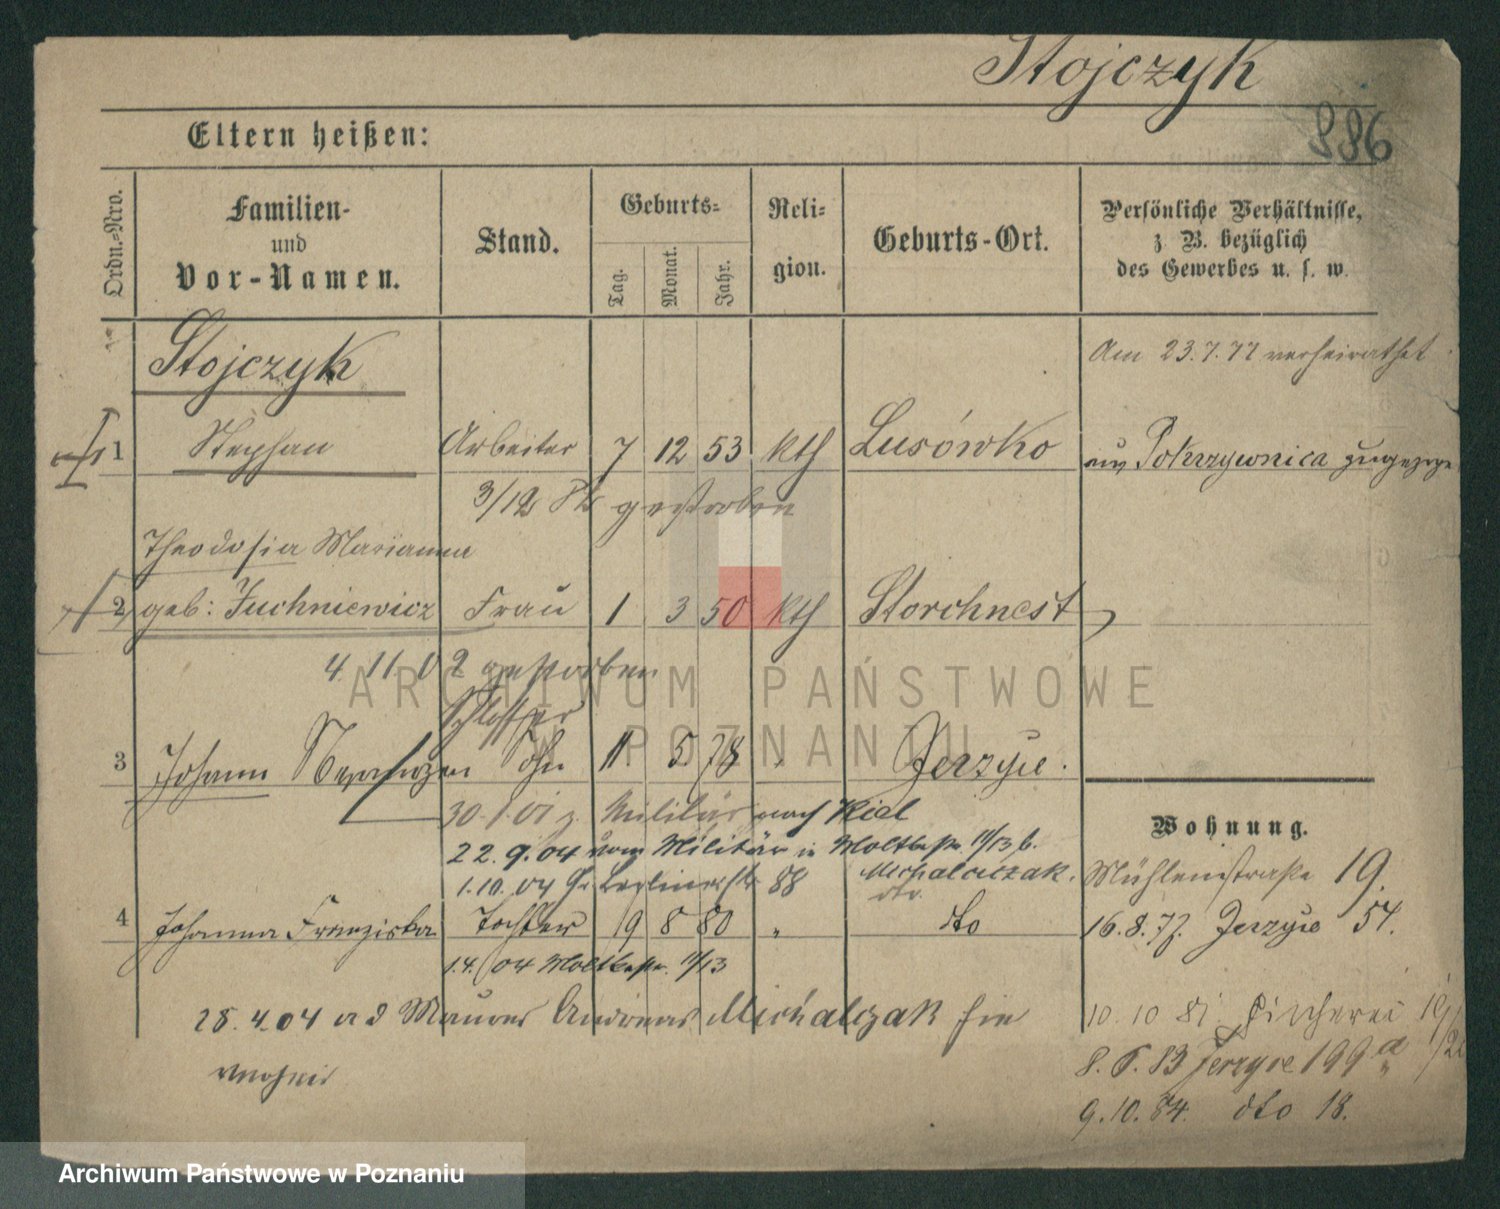 Stojczyk
886
Eltern heißen:
Ordn.=Nro.
Familien-
und
Vor-Namen.
Stand.
Geburts=
Tag.
Monat.
Jahr.
Reli=
gion.
Geburts-Ort.
Persönliche Verhältnisse,
z B. bezüglich
des Gewerbes u. s. w.
Stojczyk
Am 23.7.77 verheirathet
1 Stephan Arbeiter 7 12 53 kth Lusówko
aus Pokrzywnica
3/12 gestorben
Theodosia Marianna
2 geb: Juchniewicz Frau 1 3 50 kth Storchnest
4. 11. 02 gestorben
Schlosser
3 Johann Sohn 11 5 78 " Jerzyce.
Militär nach Kiel
22. 9. 04 vom Militär in Moltkestr. 11/13 b.
Michalczak.
1. 10. 04 Gr. Berlinerstr 88
dto.
4 Johanna Franziska Tochter 19 8 80 " dto
1.4. 04 Moltkestr. 11/13
28. 4. 04 Maurer Andreas Michalczak hier
Wohnung.
Mühlenstraße 19.
16. 8. 77. Jerzyce 54.
10. 10 81.
8. 6. 83 Jerzyce 199 a
9. 10. 84. dto 18.
ARCHIWUM PAŃSTWOWE
W POZNANIU
Archiwum Państwowe w Poznaniu